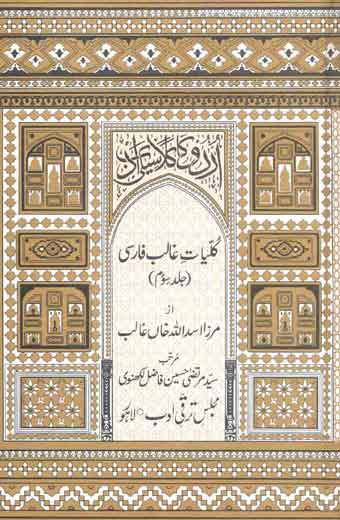 اردو کا کلاسیکی ادب
کلیات غالب فارسی
(جلد سوم)
از
مرزا اسد اللہ خاں غالب
مرتبہ
سید مرتضیٰ حسین فاضل لکھنوی
مجلس ترقی ادب ○ لاہور